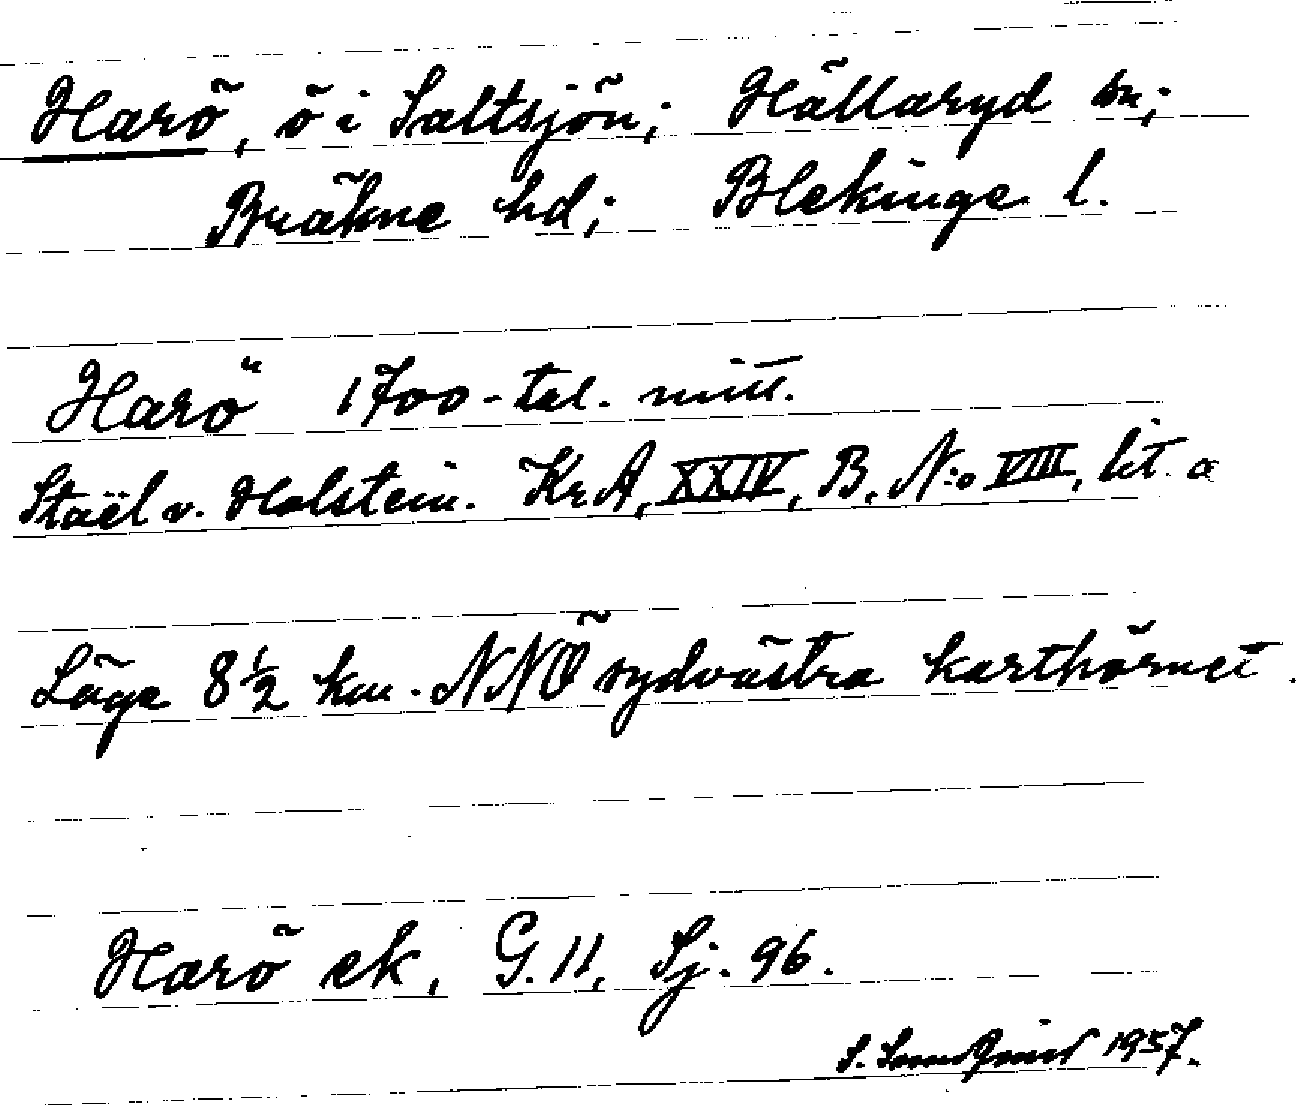 Harö, ö i Saltsjön; Hällaryd sn;
Bräkne hd; Blekinge l.
Harö 1700-tal. mitt.
Staël v. Holstein. KrA, XXIV, B, N:o VIII, lit. a
Läge 8½ km. NNÖ sydvästra karthörnet.
Harö ek, G. 11, Sj. 96.
S. 1957.